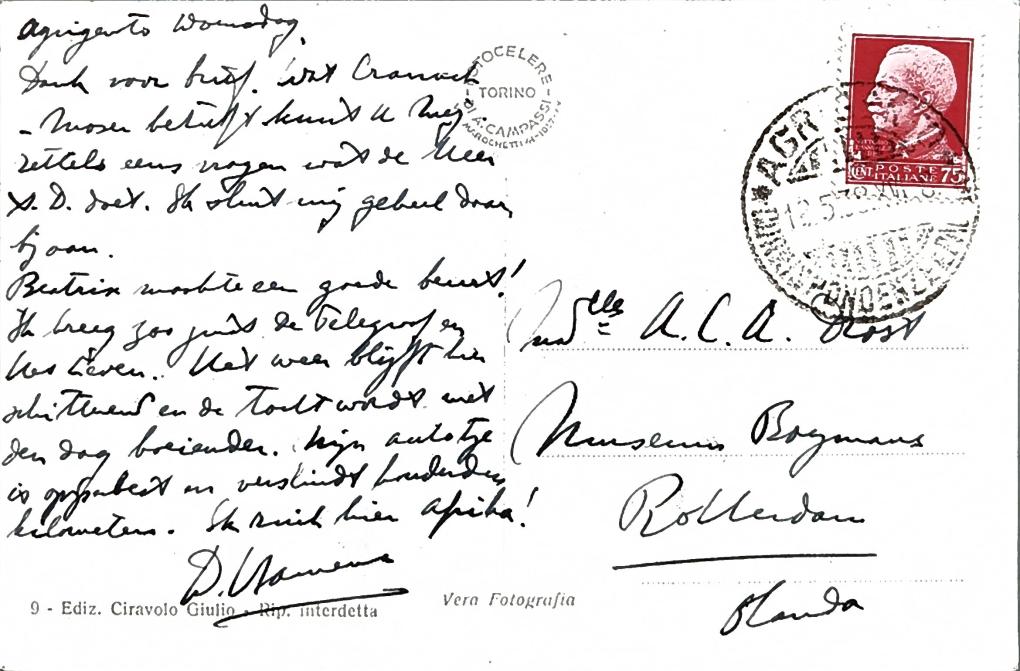 Agrigento Woensdag
Dank voor brief. Wat Cranach
- Moser betreft kunt U Mej.
eens vragen wat de Heer
v. D. doet. Ik sluit mij geheel daar
bij aan.
Beatrix maakte een goede beurt!
Ik kreeg zoo juist de Telegraaf en
Het Leven. Het weer blijft hier
schitterend en de tocht wordt met
den dag boeiender. Mijn autotje
is opperbest en verslindt honderden
kilometers. Ik ruik hier Afrika!
D. Hannema
9 - Ediz. Ciravolo Giulio - Rip. interdetta
Vera Fotografia
FOTOCELERE
TORINO
DI A. CAMPASSI
POSTE
ITALIANE
CENT 75
AGR
12.5.38.XVI
CORRISPONDENZE
Mdlle A. C. A. Rost
Museum Boymans
Rotterdam
Olanda